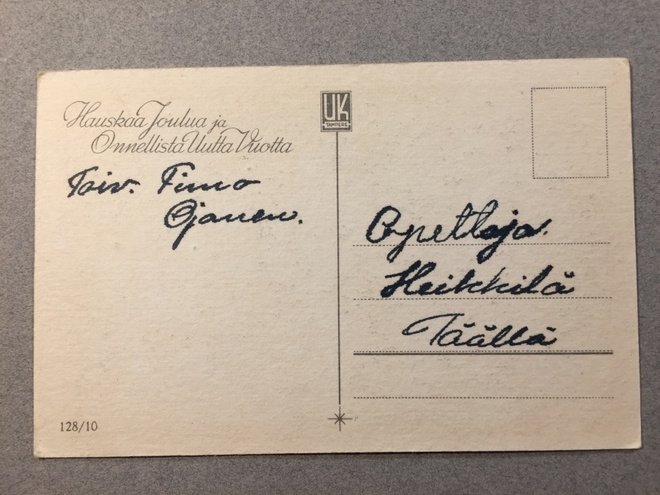 Hauskaa Joulua ja
Onnellista Uutta Vuotta
Toiv. Timo
Ojanen.
128/10
UK
TAMPERE
Opettaja.
Heikkilä
Täällä